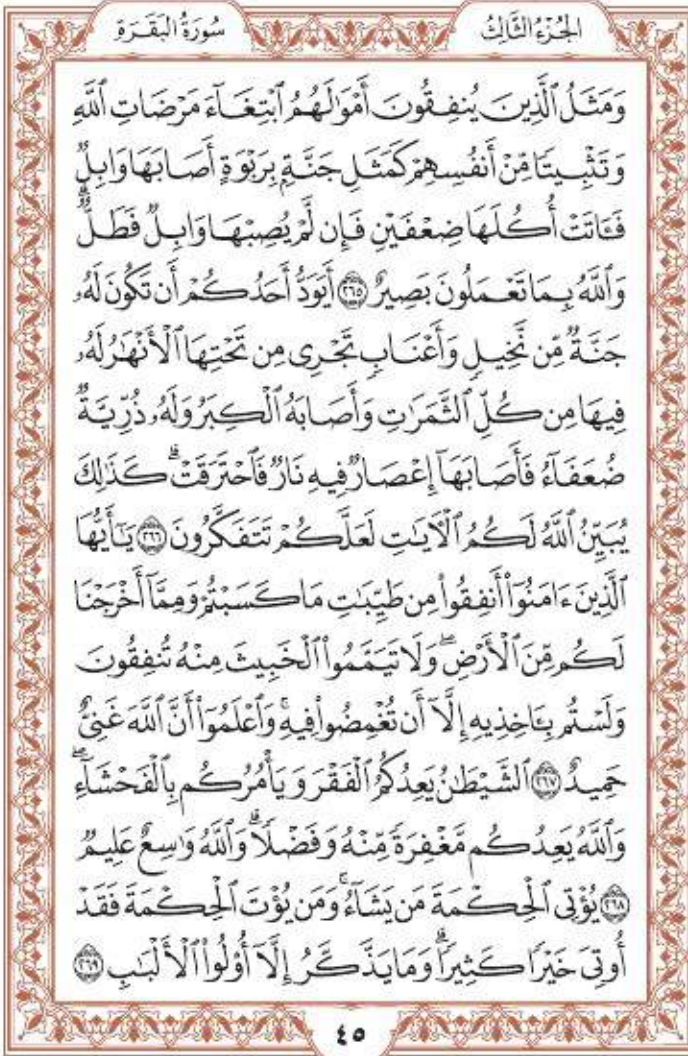 سُورَةُ البَقَرَةِ الجُزْءُ الثَّالِثُ
وَمَثَلُ ٱلَّذِينَ يُنفِقُونَ أَمْوَٰلَهُمُ ٱبْتِغَآءَ مَرْضَاتِ ٱللَّهِ
وَتَثْبِيتًا مِّنْ أَنفُسِهِمْ كَمَثَلِ جَنَّةٍۭ بِرَبْوَةٍ أَصَابَهَا وَابِلٌ
فَـَٔاتَتْ أُكُلَهَا ضِعْفَيْنِ فَإِن لَّمْ يُصِبْهَا وَابِلٌ فَطَلٌّۗ
وَٱللَّهُ بِمَا تَعْمَلُونَ بَصِيرٌ ٢٦٥ أَيَوَدُّ أَحَدُكُمْ أَن تَكُونَ لَهُۥ
جَنَّةٌ مِّن نَّخِيلٍ وَأَعْنَابٍ تَجْرِى مِن تَحْتِهَا ٱلْأَنْهَٰرُ لَهُۥ
فِيهَا مِن كُلِّ ٱلثَّمَرَٰتِ وَأَصَابَهُ ٱلْكِبَرُ وَلَهُۥ ذُرِّيَّةٌ
ضُعَفَآءُ فَأَصَابَهَآ إِعْصَارٌ فِيهِ نَارٌ فَٱحْتَرَقَتْۗ كَذَٰلِكَ
يُبَيِّنُ ٱللَّهُ لَكُمُ ٱلْـَٔايَٰتِ لَعَلَّكُمْ تَتَفَكَّرُونَ ٢٦٦ يَٰٓأَيُّهَا
ٱلَّذِينَ ءَامَنُوٓا۟ أَنفِقُوا۟ مِن طَيِّبَٰتِ مَا كَسَبْتُمْ وَمِمَّآ أَخْرَجْنَا
لَكُم مِّنَ ٱلْأَرْضِۖ وَلَا تَيَمَّمُوا۟ ٱلْخَبِيثَ مِنْهُ تُنفِقُونَ
وَلَسْتُم بِـَٔاخِذِيهِ إِلَّآ أَن تُغْمِضُوا۟ فِيهِۚ وَٱعْلَمُوٓا۟ أَنَّ ٱللَّهَ غَنِىٌّ
حَمِيدٌ ٢٦٧ ٱلشَّيْطَٰنُ يَعِدُكُمُ ٱلْفَقْرَ وَيَأْمُرُكُم بِٱلْفَحْشَآءِۖ
وَٱللَّهُ يَعِدُكُم مَّغْفِرَةً مِّنْهُ وَفَضْلًاۗ وَٱللَّهُ وَٰسِعٌ عَلِيمٌ
٢٦٨ يُؤْتِى ٱلْحِكْمَةَ مَن يَشَآءُۚ وَمَن يُؤْتَ ٱلْحِكْمَةَ فَقَدْ
أُوتِىَ خَيْرًا كَثِيرًاۗ وَمَا يَذَّكَّرُ إِلَّآ أُو۟لُوا۟ ٱلْأَلْبَٰبِ ٢٦٩
٤٥